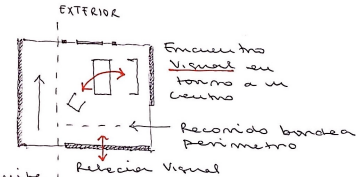 EXTERIOR
Encuentro
Visual en
torno a un
centro
Recorrido bordea
perimetro
Relacion Visual